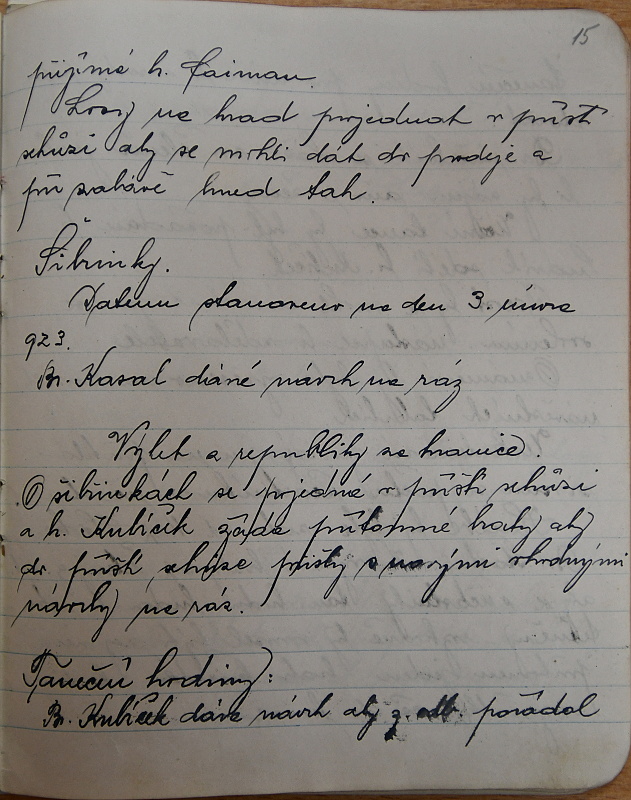 15
přijímá h. Caiman.
Losy na hrad projednat v příští
schůzi aby se mohli dát do prodeje a
při zábávě hned tah.
Šibřinky.
Datum stanoveno na den 3. února
923.
Br. Kasal dáné návrh na ráz
Výlet z republiky za hranice.
O šibřinkách se projedná v příští schůzi
a h. Kubíček žádá přítomné braty aby
do příští schůze přišly s novými vhodnými
návrhy na ráz.
Taneční hodiny:
Br. Kubíček dává návrh aby z. odb. pořádal